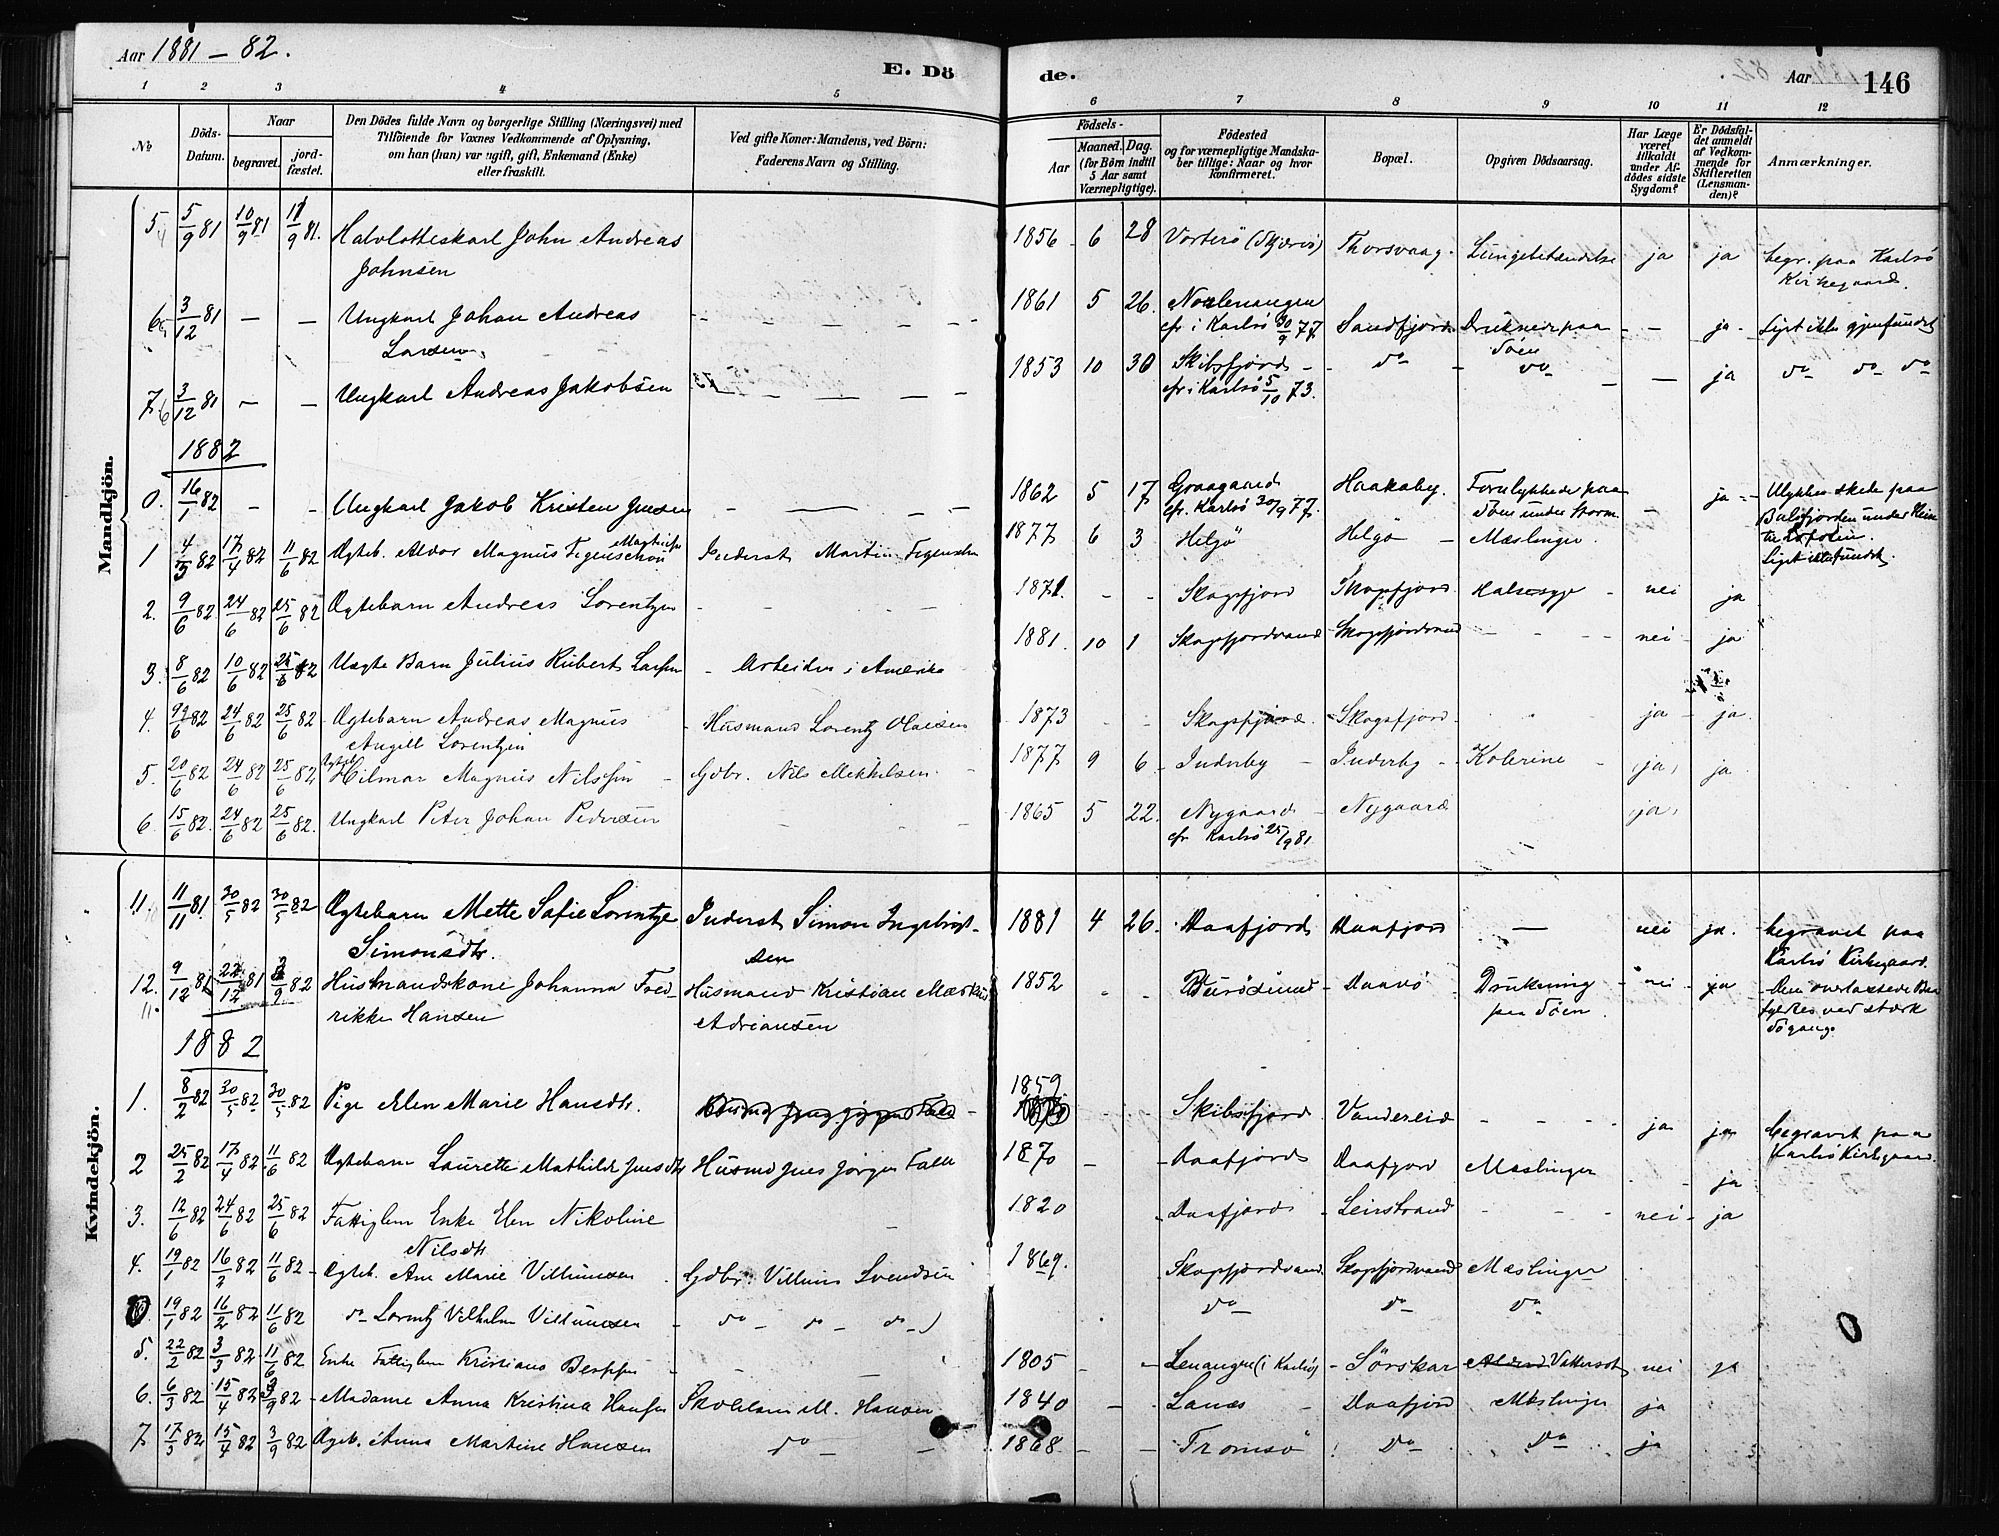 Aar 1881 - 82.
E. Dö
de.
Aar
146
1
2
3
4
5
6
7
8
9
10
11
12
No
Döds-
Datum.
Naar
begravet.
jord-
fæstet.
Den Dödes fulde Navn og borgerlige Stilling (Næringsvei) med
Tilföiende for Voxnes Vedkommende af Oplysning,
om han (hun) var ugift, gift, Enkemand (Enke)
eller fraskilt.
Ved gifte Koner: Mandens, ved Börn:
Faderens Navn og Stilling.
Födsels-
Aar
Maaned.
Dag.
(for Börn indtil
5 Aar samt
Værnepligtige).
Födested
og for værnepligtige Mandska-
ber tillige: Naar og hvor
konfirmeret.
Bopæl.
Opgiven Dödsaarsag.
Har Læge
været
tilkaldt
under Af-
dödes sidste
Sygdom?
Er Dödsfal-
det anmeldt
af Vedkom-
mende for
Skifteretten
(Lensman-
den)?
Anmærkninger.
Mandkjön.
5 5/9 81 10/9 81 11/9 81. Halvlotteskarl John Andreas
Johnsen
1856 - 6 28 Vorterö (Skjervö) Thorsvaag. Lungebetændelse ja ja begr. paa Karlsö
Kirkegaard.
6 3/12 81 — — Ungkarl Johan Andreas
Larsen
1861 5 26. cfr. i Karlsö 30/9 77. Sandfjord Druknede paa
Söen — ja - Liget ikke gjenfundet
7 3/12 81 — — Ungkarl Andreas Jakobsen
1853 10 30 Skibsfjord - do do — ja do do do
cfr. i Karlsö 5/10 73.
1882
0. 16/1 82 - - Ungkarl Jakob Kristen Jensen
1862 5 17 Graagaard Haakaby. Forulykkede paa
cfr. Karlsö 30/9 77. Söen under Storm. — ja - Ulykken skede paa
Balsfjorden under
Liget
1 4/3 82 17/4 82 11/6 82 Ægteb. Aldor Magnus Figenschou Inderst Martin Figenschou
1877 6 3 Helgö Helgö - Mæslinger
2. 9/6 82. 24/6 82 25/6 82 Ægtebarn Andreas Lorentzen
1871. - - Skogsfjord Skogsfjord Halssyge - nei ja
3. 8/6 82 10/6 82 25/6 82 Uægte Barn Julius Rubert Larsen - Arbeider i Amerika
1881 10 1 Skogsfjordvand Skogsfjordvand - nei - ja
4. 24/6 82 25/6 82 Ægtebarn Andreas Magnus
Angell Lorentzen - Husmand Lorentz Olaisen
1873 - - Skogsfjord - Skogsfjord ja - ja
5. 20/6 82 24/6 82 25/6 82 Ægteb. Hilmar Magnus Nilssen - Gdbr. Nils Mekkelsen.
1877 9 6 - Inderby - Inderby - Kolerine - ja, ja
6. 15/6 82. 24/6 82 25/6 82. Ungkarl Peter Johan Pedersen
1865 5 22. Nygaard - Nygaard ja,
cfr Karlsö 25/9 81
Kvindekjön.
11. 11/11 81 30/5 82 30/5 82 Ægtebarn Mette Sofie Lorentze
Simonsdtr. Inderst Simon Ingebrigt-
sen
1881 4 26. Daafjord Daafjord — nei ja. begravet paa
Karlsö Kirkegaard.
12. 9/12 81 22/12 81 3/9 82 Husmandskone Johanna Fred-
rikke Hansen Husmand Kristian
Adriansen
1852 Burösund - Daavö - Drukning
paa Söen. nei - ja - Den
ved stærk
Sögang.
1882
1. 8/2 82 30/5 82 30/5 82 Pige Elen Marie Hansdtr.
1859
Skibsfjord Vandereid - ja ja begravet paa
Karlsö Kirkegaard.
2 25/2 82 17/4 82 11/6 82 Ægtebarn Laurette Mathilde Jensdtr Husmd Jens Jörgen Falk
1870 - - Daafjord Daafjord Mæslinger ja
3. 12/6 82 24/6 82 25/6 82 Fattiglem Enke Elen Nikoline
Nilsdtr
1820 - Daafjord - Leirstrand nei - ja
4. 19/1 82 16/2 82 11/6 82 - Ægteb. Ane Marie Villumsen Gdbr. Villum Svendsen
1869. Skogsfjordvand. Skogsfjordvand Mæslinger
19/1 82 16/2 82 11/6 82 do Lorentz Vilhelm Villumsen - do - do - do -)
do do do 0
5. 22/2 82 3/3 82 11/6 82 Enke Fattiglem Kristiane
1805 - - Lenangen (i Karlsö) - Sörskar Vattersot nei ja
6. 6/3 82 15/4 82 3/9 82 - Madame Anna Kristina Hansen M. Hansen
1840 - Lanæs - Daafjord Mæslinger ja
7 17/3 82 15/4 82 3/9 82 Ægteb. Anna Martine Hansen do -
1868 - - Tromsö do do ja